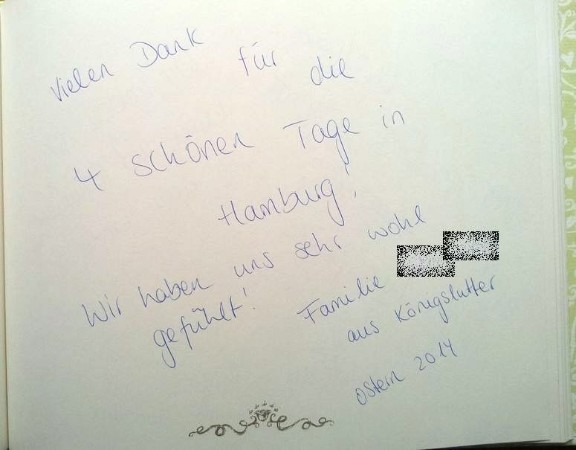 Vielen Dank für die
4 schönen Tage in
Hamburg!
Wir haben uns sehr wohl
gefühlt! Familie
aus Königslutter
Ostern 2014